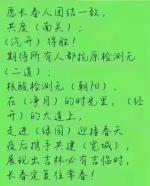 愿长春人团结一致，
共度（南关）；
（汽开）得胜！
期待所有人都抗原检测元
（二道）；
核酸检测元（朝阳）.
在（净月）的时光里，（经
开）的大道上，
走进（绿园）迎接春天
疫后携手共建（宽城），
展现出吉林必有吉临时，
长春定复往常春！